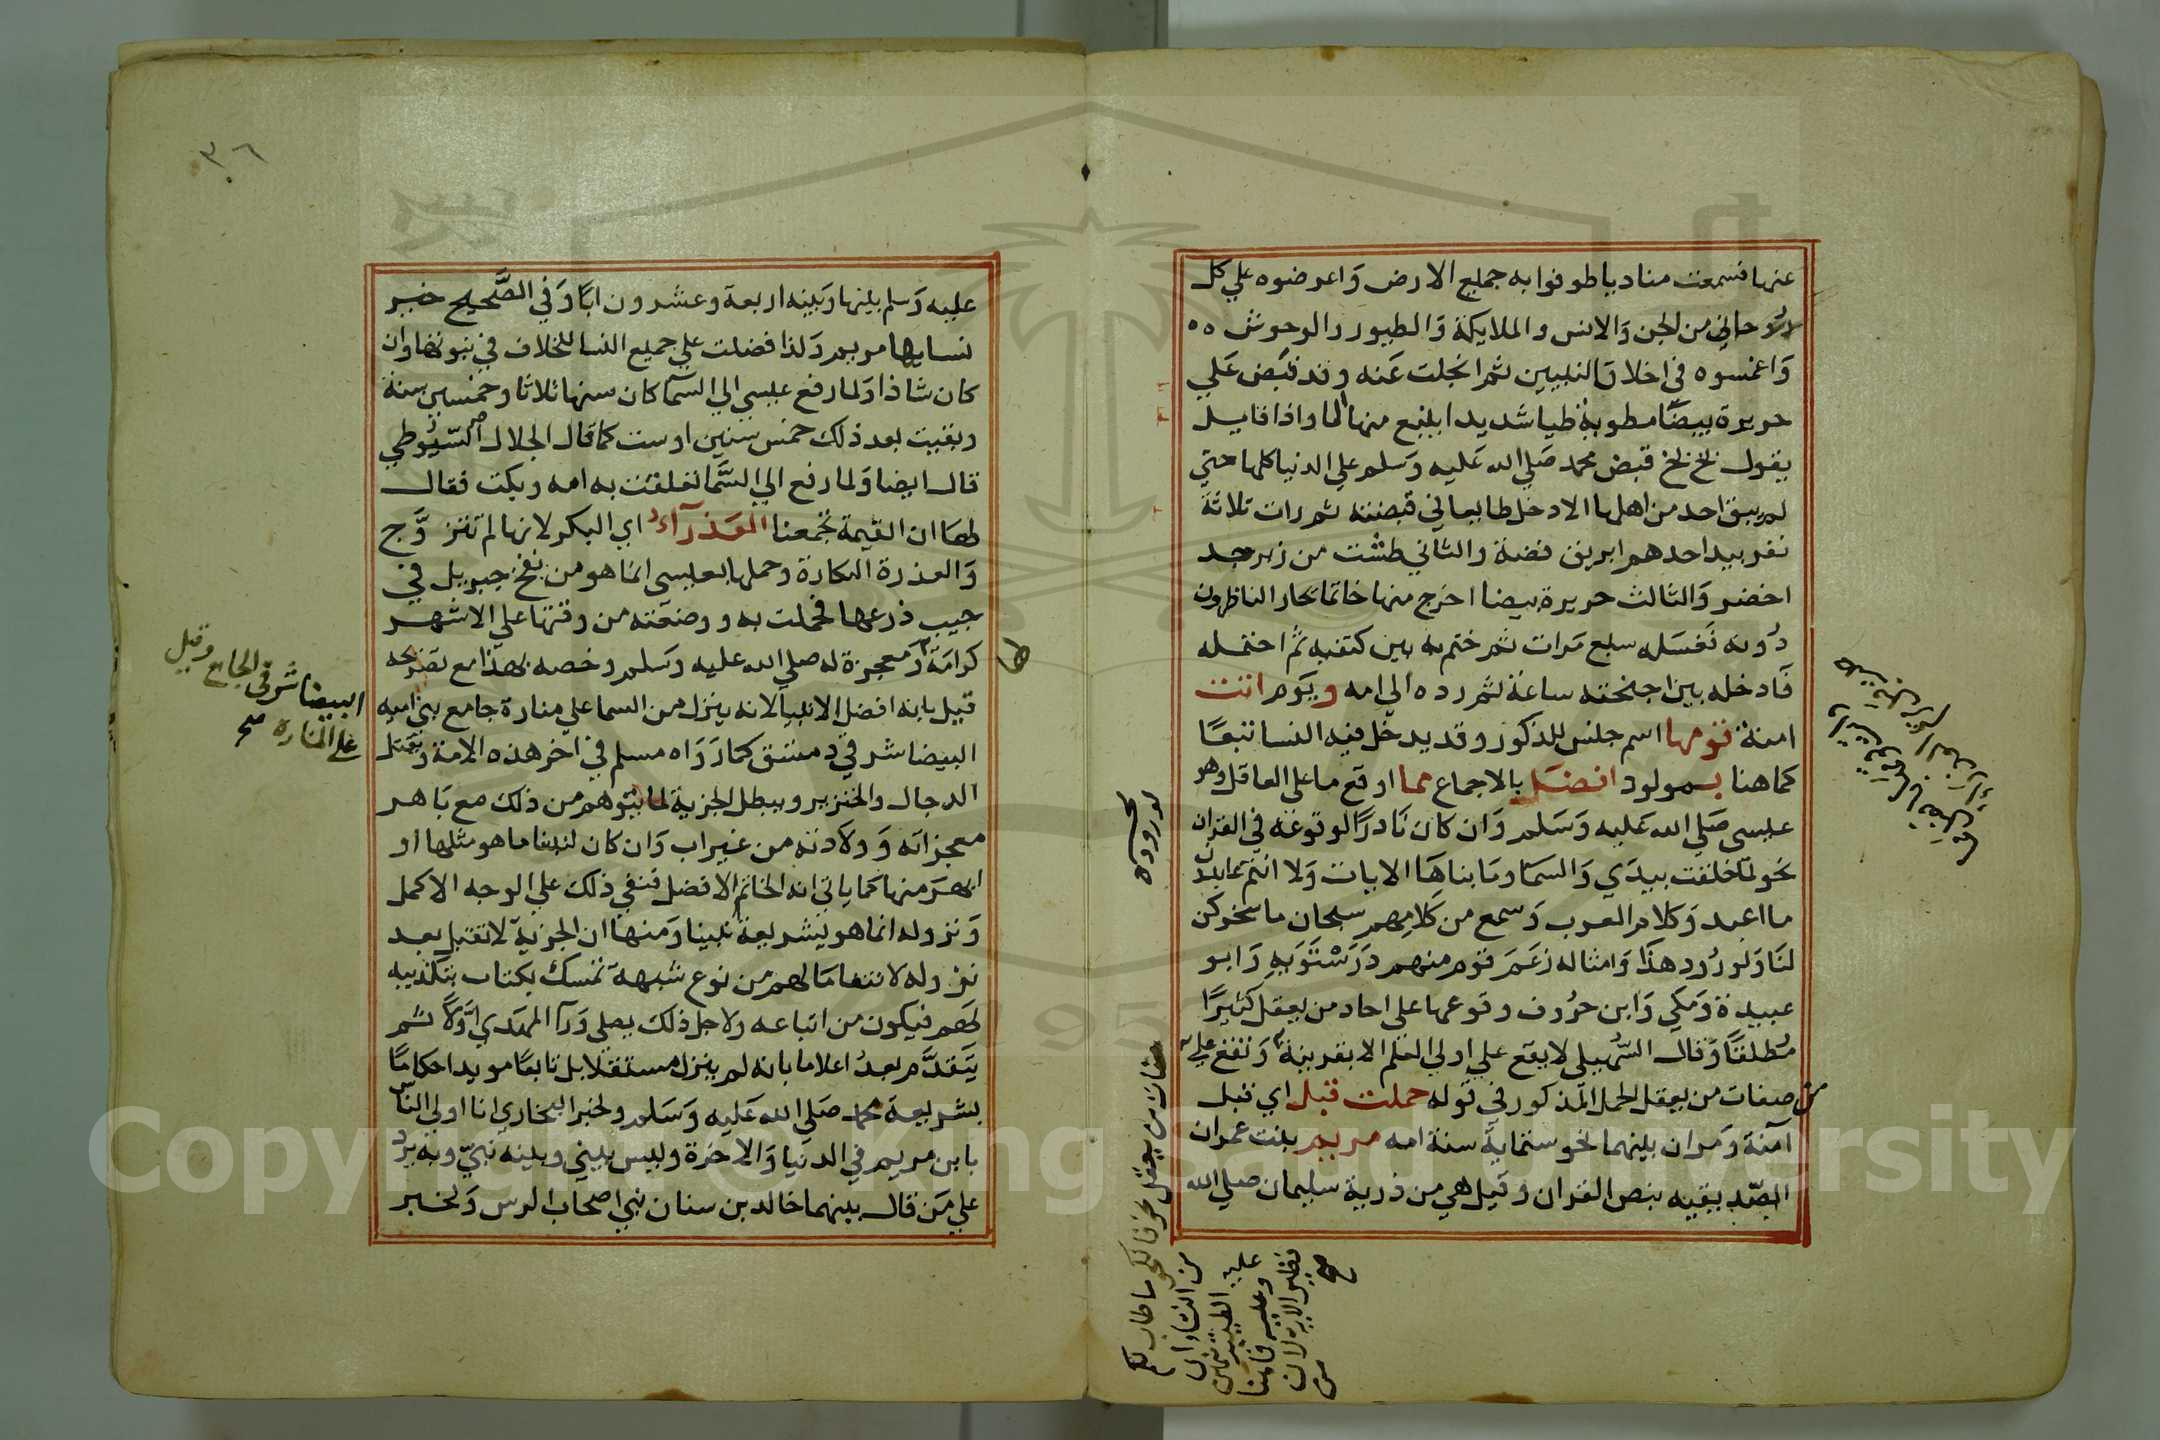 عنها فسمعت مناديا طوفوا به جميع الارض واعرضوه علي كل
روحاني من الجن والانس والملايكة والطيور والوحوش ه ه
واغمسوه في اخلاق النبيين ثم انجلت عنه وقد قبض علي
حريرة بيضا مطوية طيا شديدا ينبع منها الما واذا قايل
يقول بخ بخ قبض محمد صلي الله عليه وسلم علي الدنيا كلها حتي
لم يبق احد من اهلها الا دخل طايعا في قبضته ثم رات ثلاثة
نفر بيد احدهم ابريق فضة والثاني طشت من زبرجد
اخضر والثالث حريرة بيضا اخرج منها خاتما تحار الناظرون
دونه فغسله سبع مرات ثم ختم به بين كتفيه ثم احتمله
فادخله بين اجنحته ساعة ثم رده الي امه ويوم اتت
امنة قومها اسم جنس للذكور وقد يدخل فيه النسا تبعا
كما هنا بمولود افضل بالاجماع مما اوقع ما علي العاقل وهو
عيسي صلي الله عليه وسلم وان كان نادرا لوقوعه في القران
نحو لما خلقت بيدي والسما وما بناها الايات ولا انتم عابدون
ما اعبد وكلام العرب وسمع من كلامهم سبحان ما سخركن
لنا ولورود هذا وامثاله زعم قوم منهم درستويه وابو
عبيدة ومكي وابن خروف وقوعها علي احاد من يعقل كثيرا
مطلقا وقال السهيلي لا يقع علي اولي العلم الا بقرينة وتقع علي
صفات من يعقل الحمل المذكور في قوله حملت قبل اي قبل
آمنة ومر ان بينهما نحو ستماية سنة امه مريم بنت عمران
الصديقية بنص القران وقيل هي من ذرية سليمان صلي الله
لوروده
صفات من يعقل نحو فانكحوا ما طاب لكم
من النسا
٣٦
عليه وسلم بينها وبينه اربعة وعشرون ابا وفي الصحيح خير
نسايها مريم ولذا فضلت علي جميع النسا للخلاف في نبوتها وان
كان شاذا ولما رفع عيسي الي السما كان سنها ثلاثا وخمسين سنة
وبقيت بعد ذلك خمس سنين او ست كما قال الجلال السيوطي
قال ايضا ولما رفع الي السما تعلقت به امه وبكت فقال
لها ان القيمة تجمعنا العذرآء اي البكر لانها لم تتزوج
والعذرة البكارة وحملها بعيسي انما هو من نفخ جبريل في
جيب ذرعها فحملت به ووضعته من وقتها علي الاشهر
كرامة او معجزة له صلي الله عليه وسلم وخصه بهذا مع تصريحه
قيل بانه افضل الانبيا لانه ينزل من السما علي منارة جامع بني اميه
البيضا شرقي دمشق كما رواه مسلم في اخر هذه الامة ويقتل
الدجال والخنزير ويبطل الجزية لما يتوهم من ذلك مع باهر
معجزاته وولادته من غير اب وان كان لنبينا ما هو مثلها او
ابهر منها كما ياتي انه الخاتم الافضل فنفي ذلك علي الوجه الاكمل
ونزوله انما هو بشريعة نبينا ومنها ان الجزية لا تقبل بعد
نزوله لانتفا ما لهم من نوع شبهة تمسك بكتاب بتكذيبه
لهم فيكون من اتباعه ولاجل ذلك يصلي ورآ المهدي اولا ثم
يتقدم بعد اعلاما بانه لم ينزل مستقلا بل تابعا مويدا حكاما
بشريعة محمد صلي الله عليه وسلم ولخبر البخاري انا اولي الناس
بابن مريم في الدنيا والاخرة وليس بيني وبينه نبي وبه يرد
علي من قال بينهما خالد بن سنان نبي اصحاب الرس ولخبر
البيضا شرقي الجامع وقيل
علي المنارة صح
Copyright © King Saud University